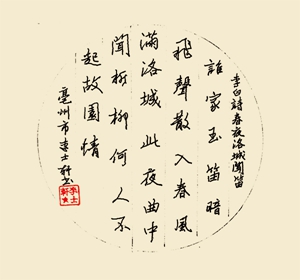 李白詩春夜洛城聞笛
誰家玉笛暗
飛聲散入春風
滿洛城此夜曲中
聞折柳何人不
起故園情
亳州市李士軒书